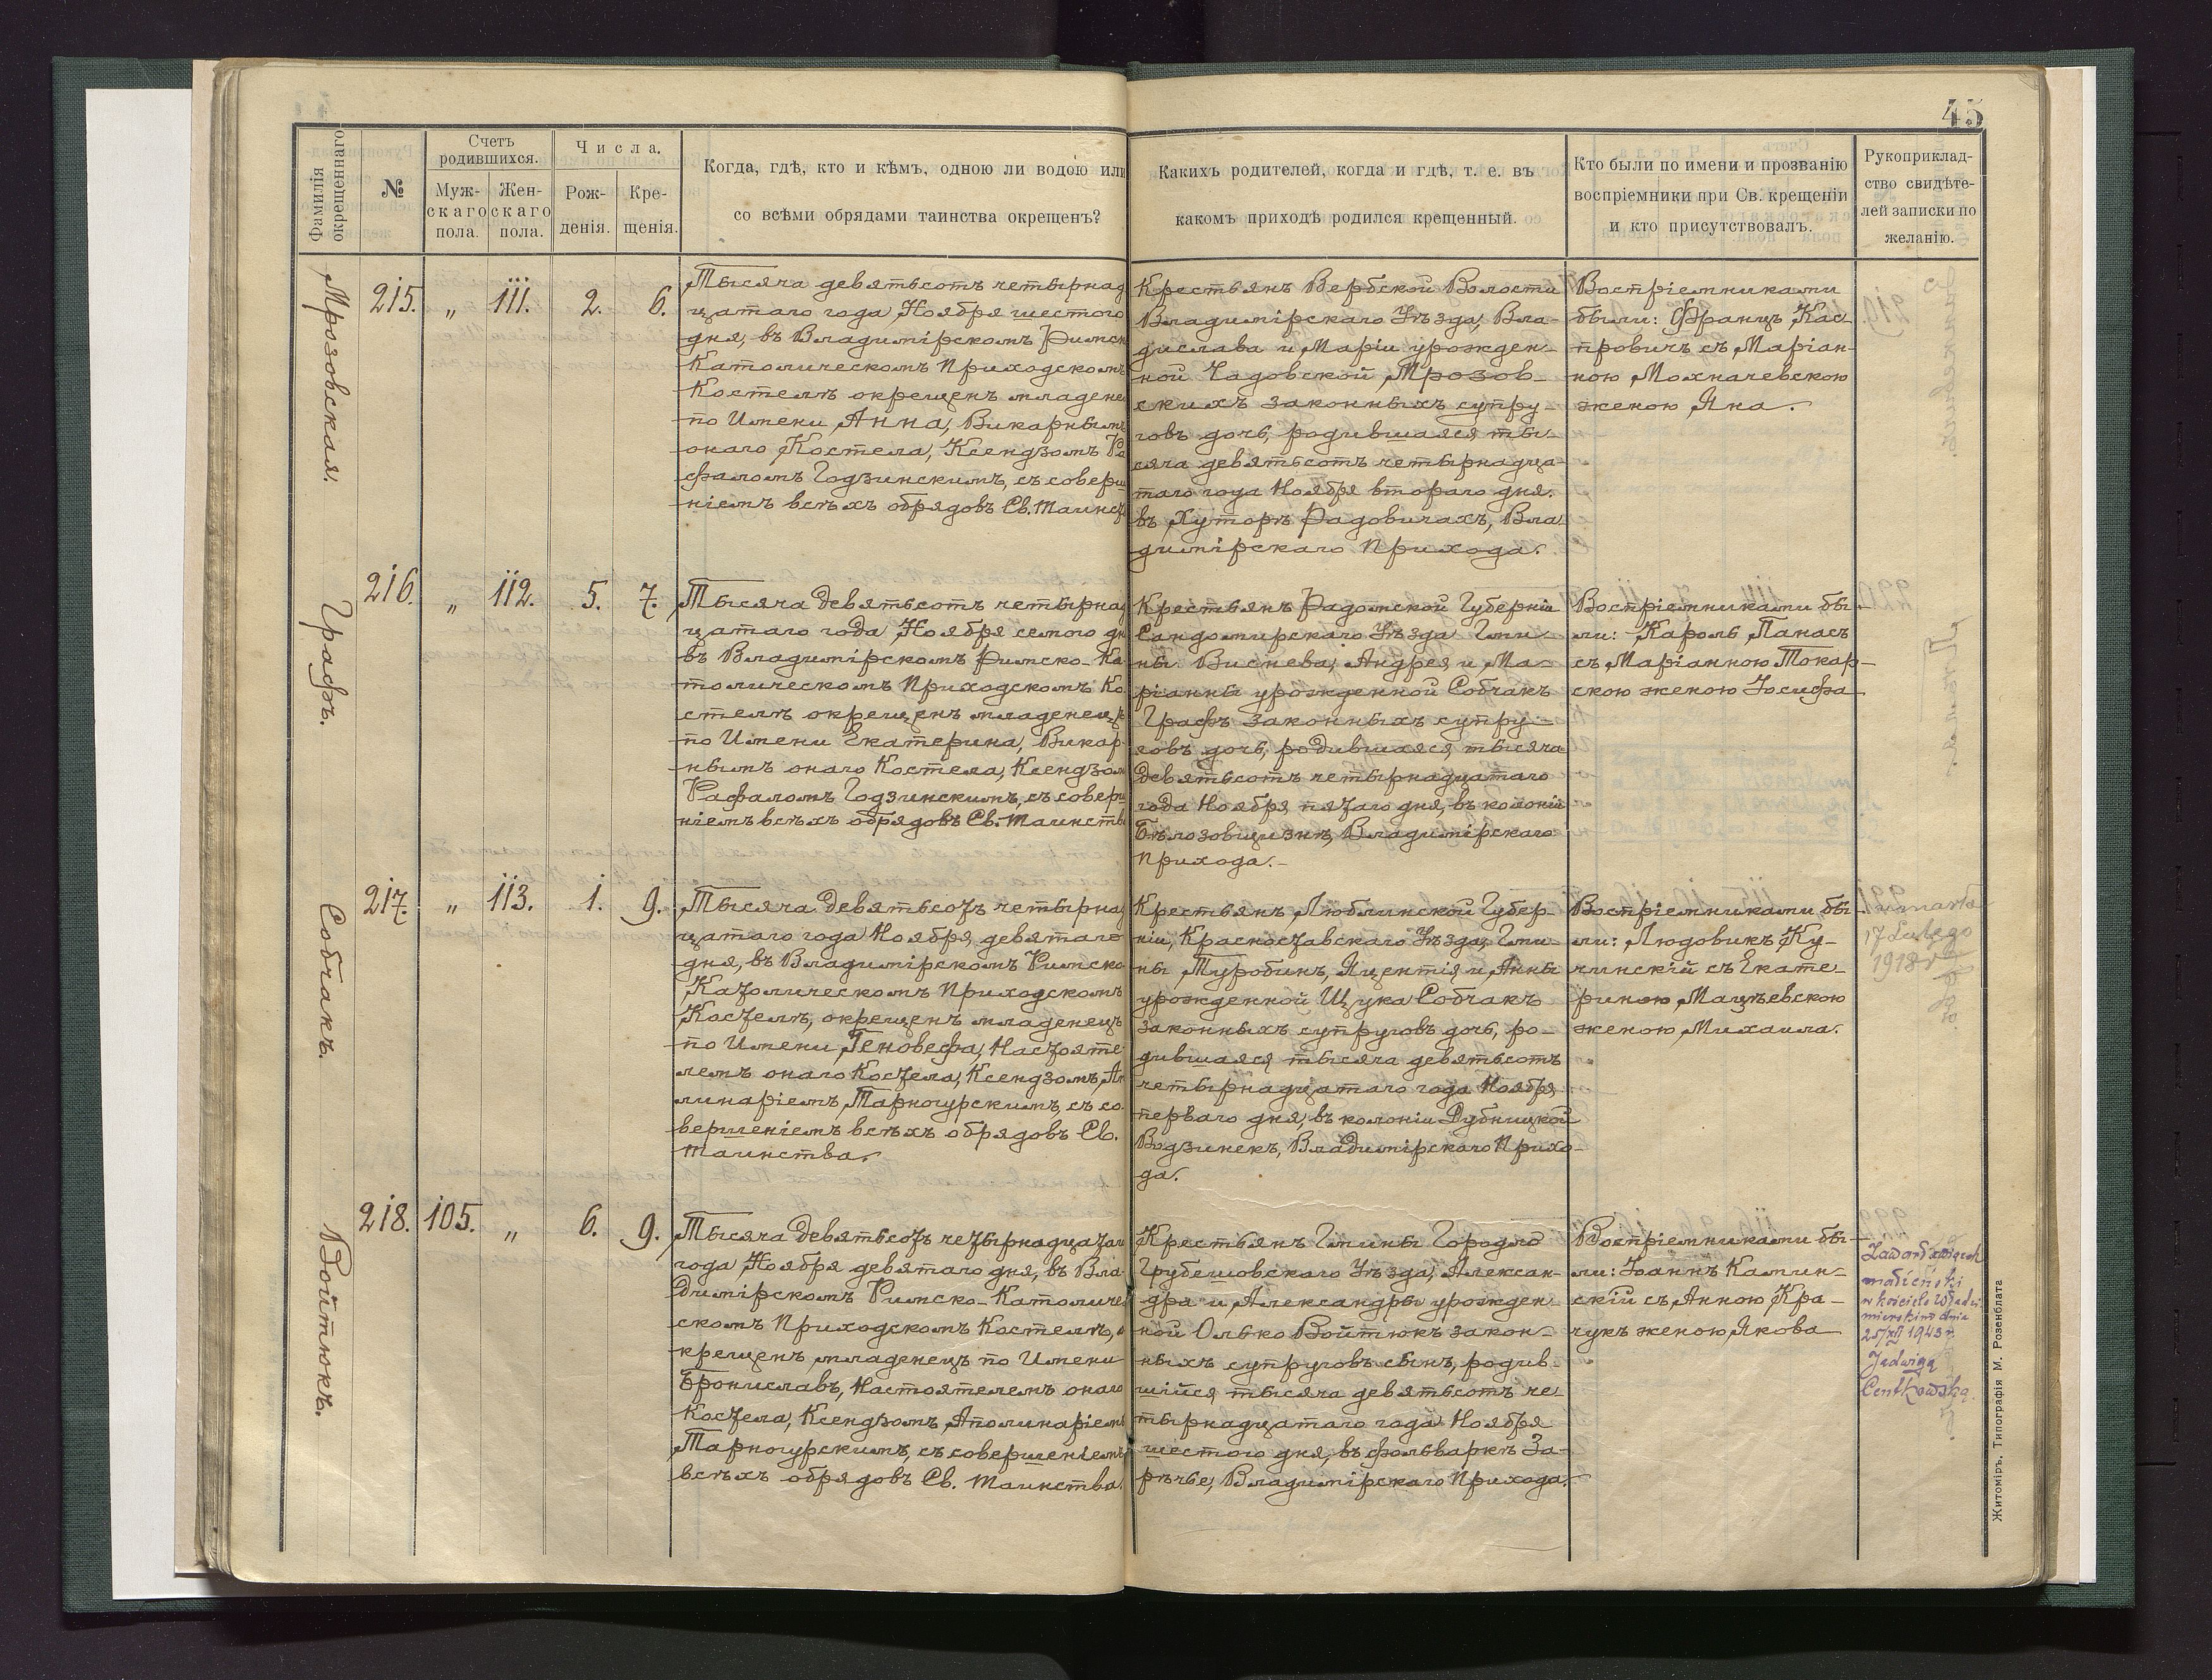 45
Фамилія окрещеннаго
№
Счетъ родившихся.
Муж-скаго пола.
Жен-скаго пола.
Числа.
Рож-денія.
Кре-щенія.
Когда, гдѣ, кто и кѣмъ, одною ли водою или
со всѣми обрядами таинства окрещенъ?
Какихъ родителей, когда и гдѣ, т. е. въ
какомъ приходѣ родился крещенный.
Кто были по имени и прозванію
воспріемники при Св. крещеніи
и кто присутствовалъ.
Рукоприклад-
ство свидѣте-
лей записки по
желанію.
Мрозовская.
215. „ 111. 2. 6.
Тысяча девятьсотъ четырнад
цатаго года, Ноября шестого
дня, въ Владимірскомъ Римск
Католическомъ Приходскомъ
Костелѣ окрещенъ младене
по Имени Анна, Викарнымъ
онаго Костела, Ксендзомъ Ра
фаломъ Годзинскимъ, съ соверш
ніемъ всѣхъ обрядовъ Св. Таинст
Крестьянъ Вербской Волости
Владимірскаго Уѣзда, Вла-
дислава и Маріи урожден-
ной Чадовской, Мрозов-
скихъ законныхъ супру-
говъ дочь, родившаяся ты-
сяча девятьсотъ четырнадца-
таго года Ноября второго дня.
въ Хуторѣ Радовичахъ, Вла
димірскаго Прихода.
Воспріемниками
были: Францъ Кас
провичъ съ Маріан-
ною Мохначевскою
женою Яна.
Графъ.
216. „ 112. 5. 7.
Тысяча девятьсотъ четырнад
цатаго года, Ноября семого дн
въ Владимірскомъ Римско-Ка
толическомъ Приходскомъ Ко
стелѣ окрещенъ младенецъ
по Имени Екатерина, Викар-
нымъ онаго Костела, Ксендзом
Рафаломъ Годзинскимъ, съ соверш
ніемъ всѣхъ обрядовъ Св. Таинств
Крестьянъ Радомской Губерніи
Сандомирскаго Уѣзда Гми-
ны Виснева, Андрея и Ма-
ріанны урожденной Собчакъ
Графъ законныхъ супру-
говъ дочь, родившаяся, тысяча
девятьсотъ четырнадцатаго
года Ноября, пятаго дня, въ колоніи
Бѣлозовщизнѣ, Владимірскаго
Прихода.-
Воспріемниками бы-
ли: Кароль Панасъ
съ Маріанною Токар-
скою женою Іосифа
Собчакъ.
217. „ 113. 1. 9.
Тысяча девятьсотъ четырнад
цатаго года Ноября, девятаго
дня, въ Владимірскомъ Римско
Католическомъ Приходскомъ
Костелѣ, окрещенъ младенецъ
по Имени, Геновефа, Настояте
лемъ онаго Костела, Ксендзомъ, Ап
линаріемъ Тарногурскимъ, съ со
вершеніемъ всѣхъ обрядовъ Св.
Таинства.
Крестьянъ Люблинской Губер-
ніи, Красноставскаго Уѣзда, Гми-
ны Туробинъ, Яцентія и Анны
урожденной Щука Собчакъ
законныхъ супруговъ дочь, ро-
дившаяся тысяча девятьсотъ
четырнадцатаго года Ноября
перваго дня, въ колоніи Дубницкой
Водзинекъ, Владимірскаго Прихо-
да.
Воспріемниками бы-
ли: Людовикъ Ку-
чинскій съ Екате-
риною Мацѣевскою
женою Михаила.
zmarła
17 Lutego
1918 r
Войтюкъ.
218. 105. „ 6. 9.
Тысяча девятьсотъ четырнадцатаг
года, Ноября девятаго дня, въ Вла
димірскомъ Римско-Католиче
скомъ Приходскомъ Костелѣ, о
крещенъ младенецъ по Имени
Брониславъ, Настоятелемъ онаго
Костела, Ксендзомъ Аполинаріемъ
Тарногурскимъ, съ совершеніемъ
всѣхъ обрядовъ Св. Таинства.
Крестьянъ Гмины Городло
Грубешовскаго Уѣзда, Алексан-
дра и Александры урожден-
ной Олько Войтюкъ закон-
ныхъ супруговъ сынъ, родив-
шійся тысяча девятьсотъ че-
тырнадцатаго года Ноября
шестого дня, въ фольваркѣ За-
рѣчье, Владимірскаго Прихода.
Воспріемниками бы-
ли: Іоаннъ Камин-
скій съ Анною Кра-
чукъ женою Якова
Zawarł związek
małżeński
w kościele Włodzi
mierskim dnia
25/XII 1943 r.
Jadwigą
Centkowską.
Житоміръ, Типографія М. Розенблата